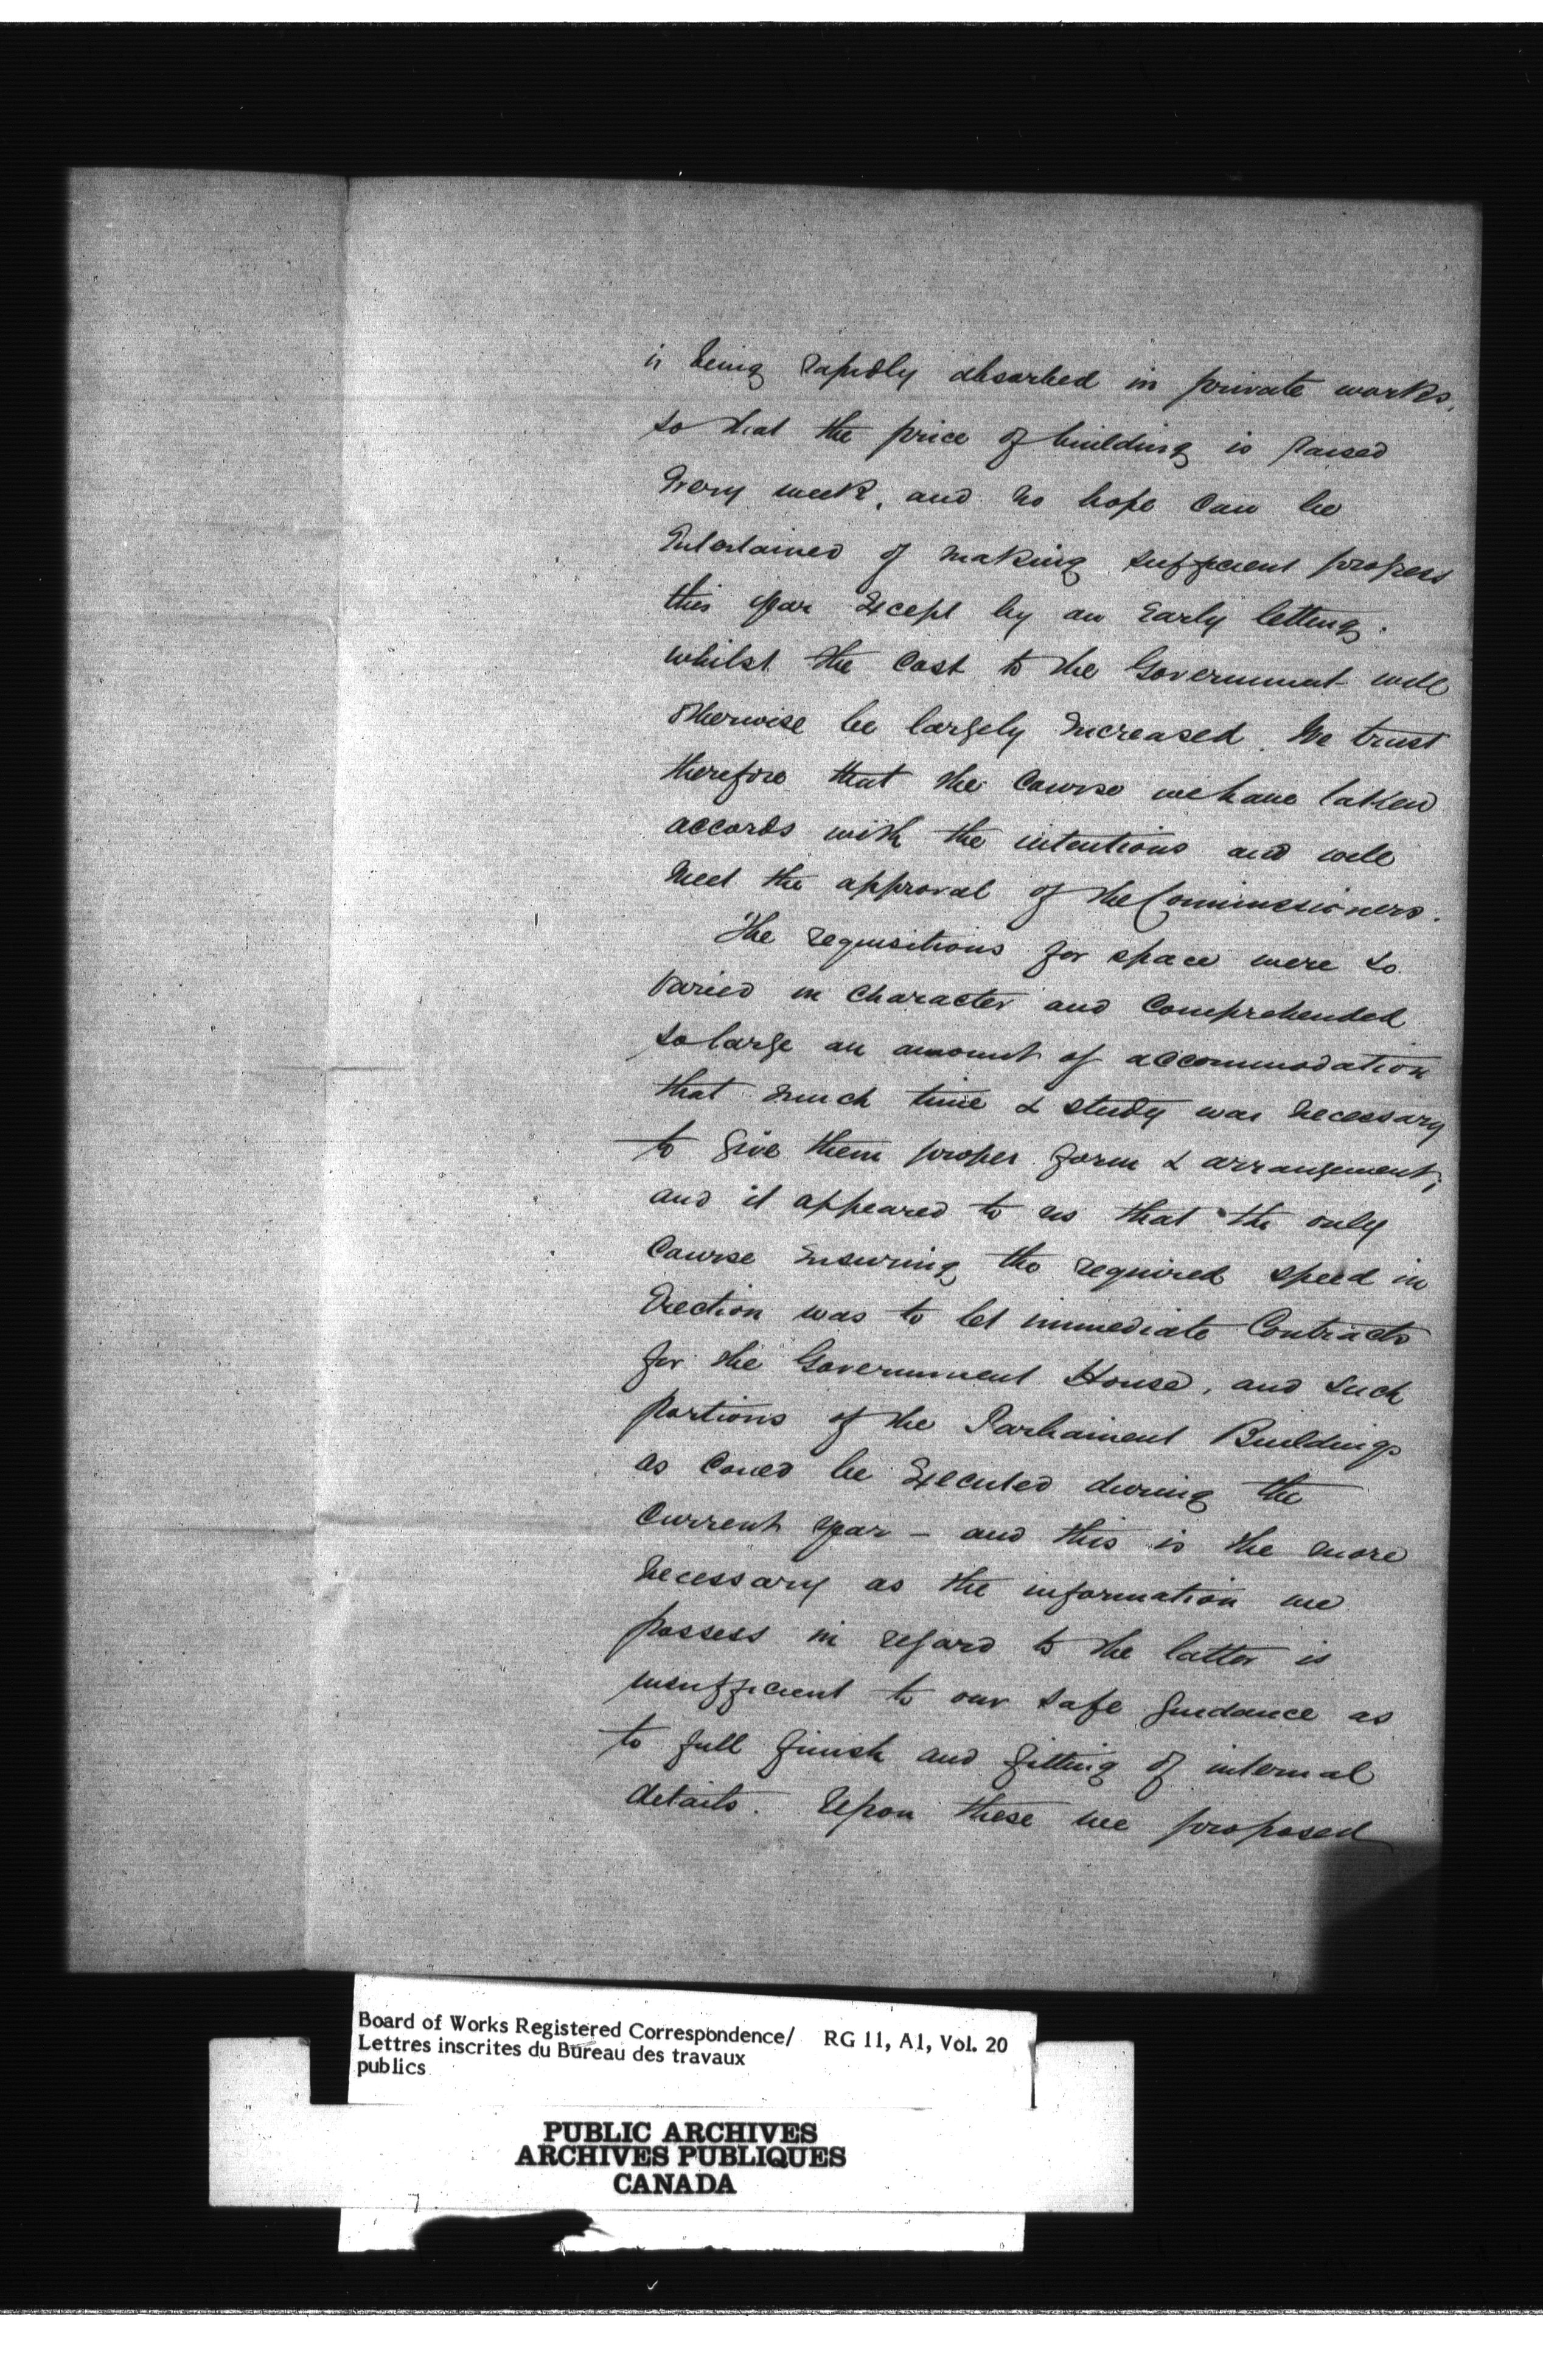 is being rapidly absorbed in private works,
so that the price of building is raised
Every week, and no hope can be
Entertained of making sufficient progress
this year Except by an Early letting.
whilst the Cost to the Government will
otherwise be largely Increased. We trust
therefore that the Course we have taken
accords with the intentions and will
meet the approval of the Commissioners.
The requisitions for space were so
varied in Character and Comprehended
so large an amount of accommodation
that much time & study was necessary
to give them proper form & arrangement,
and it appeared to us that the only
Course Ensuring the required speed in
Erection was to let immediate Contracts
for the Government House, and such
portions of the Parliament Buildings
as Could be Executed during the
Current year - and this is the more
necessary as the information we
possess in regard to the latter is
insufficient to our safe guidance as
to full finish and fitting of internal
details. Upon these we proposed
Board of Works Registered Correspondence/ RG 11, A1, Vol. 20
Lettres inscrites du Bureau des travaux
publics
PUBLIC ARCHIVES
ARCHIVES PUBLIQUES
CANADA